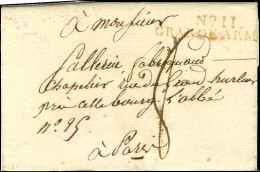 à monsieur
No. 11
GRANDE ARM
fabriquant
chapelier rue du Grand hurleur
près celle bourg l'abbé
no. 25
à Paris